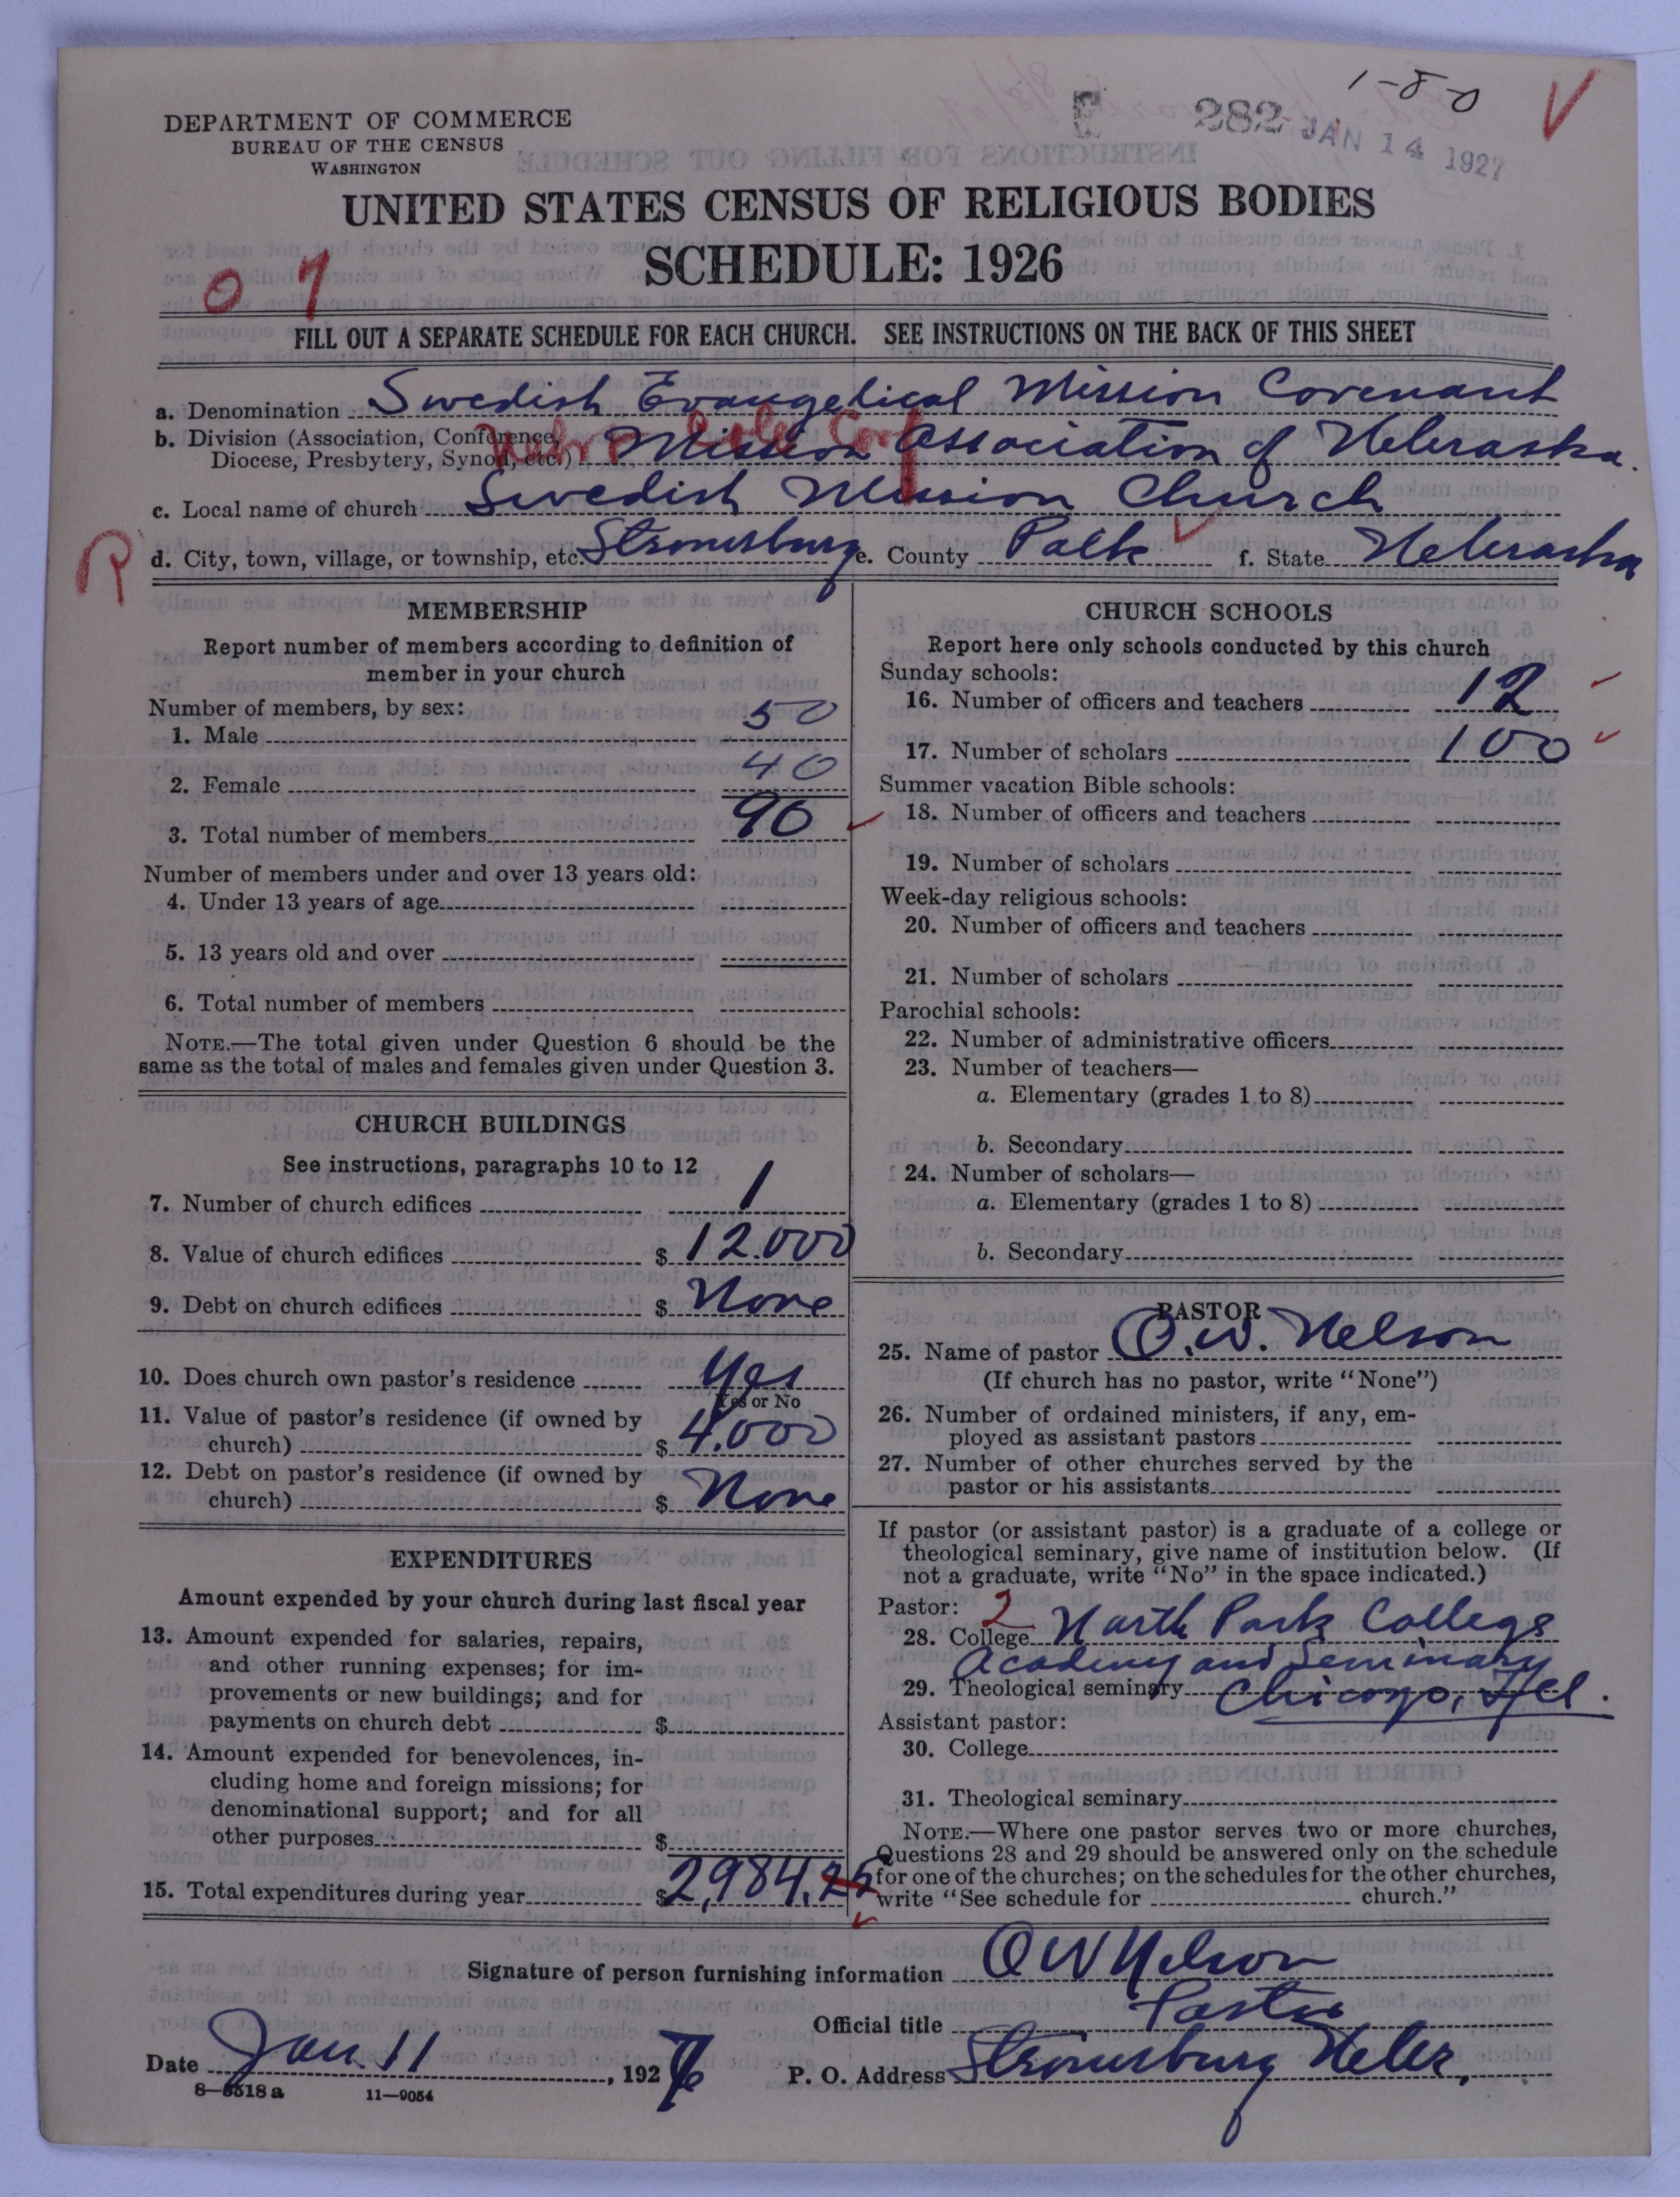 1-8-0
E 282 JAN 14 1927
DEPARTMENT OF COMMERCE
BUREAU OF THE CENSUS
WASHINGTON
UNITED STATES CENSUS OF RELIGIOUS BODIES
SCHEDULE: 1926
0 7
FILL OUT A SEPARATE SCHEDULE FOR EACH CHURCH. SEE INSTRUCTIONS ON THE BACK OF THIS SHEET
a. Denomination Swedish Evangelical Mission Covenant
b. Division (Association, Conference,
Diocese, Presbytery, Synod, etc.) Mission Association of Nebraska.
c. Local name of church Swedish Mission Church
d. City, town, village, or township, etc. Stromsburg e. County Polk f. State Nebraska
MEMBERSHIP
Report number of members according to definition of
member in your church
Number of members, by sex:
1. Male 50
2. Female 40
3. Total number of members 90
Number of members under and over 13 years old:
4. Under 13 years of age
5. 13 years old and over
6. Total number of members
NOTE.—The total given under Question 6 should be the
same as the total of males and females given under Question 3.
CHURCH BUILDINGS
See instructions, paragraphs 10 to 12
7. Number of church edifices 1
8. Value of church edifices $ 12.000
9. Debt on church edifices $ None
10. Does church own pastor's residence Yes
Yes or No
11. Value of pastor's residence (if owned by
church) $ 4.000
12. Debt on pastor's residence (if owned by
church) $ None
EXPENDITURES
Amount expended by your church during last fiscal year
13. Amount expended for salaries, repairs,
and other running expenses; for im-
provements or new buildings; and for
payments on church debt $
14. Amount expended for benevolences, in-
cluding home and foreign missions; for
denominational support; and for all
other purposes $
15. Total expenditures during year $ 2,984.25
CHURCH SCHOOLS
Report here only schools conducted by this church
Sunday schools:
16. Number of officers and teachers 12
17. Number of scholars 100
Summer vacation Bible schools:
18. Number of officers and teachers
19. Number of scholars
Week-day religious schools:
20. Number of officers and teachers
21. Number of scholars
Parochial schools:
22. Number of administrative officers
23. Number of teachers—
a. Elementary (grades 1 to 8)
b. Secondary
24. Number of scholars—
a. Elementary (grades 1 to 8)
b. Secondary
PASTOR
25. Name of pastor O.W. Nelson
(If church has no pastor, write "None")
26. Number of ordained ministers, if any, em-
ployed as assistant pastors
27. Number of other churches served by the
pastor or his assistants
If pastor (or assistant pastor) is a graduate of a college or
theological seminary, give name of institution below. (If
not a graduate, write "No" in the space indicated.)
Pastor: 2
28. College North Park College
Academy and Seminary
29. Theological seminary Chicago, Ill.
Assistant pastor:
30. College
31. Theological seminary
NOTE.—Where one pastor serves two or more churches,
Questions 28 and 29 should be answered only on the schedule
for one of the churches; on the schedules for the other churches,
write "See schedule for church."
Signature of person furnishing information O W Nelson
Official title Pastor
Date Jan. 11, 1927 P. O. Address Stromsburg Nebr.
8—5518 a 11—9054